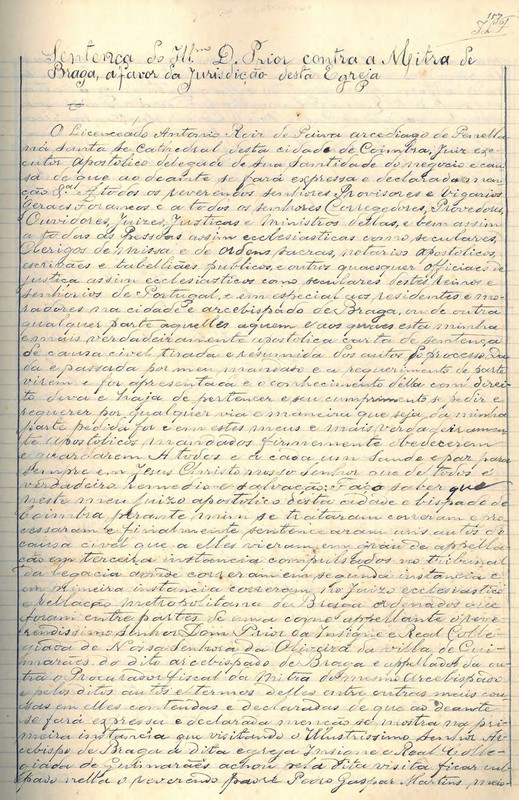 Sentença do Illmo D. Prior contra a Mitra de
Braga, a favor da Jurisdição desta Egreja
O Licenceado Antonio Roiz de Paiva arcediago de Penella
na Santa Sé Cathedral desta cidade de Coimbra, Juiz exe-
cutor apostolico delegado de Sua Santidade do negocio e cau-
sa de que ao deante se fará expressa e declarada men-
ção &al A todos os reverendos senhores, Provisores e Vigarios
Geraes Foraneos e a todos os senhores Corregedores, Provedores,
Ouvidores, Juizes, Justiças e Ministros dellas, e bem assim
a todas as Pessoas assim ecclesiasticas como seculares,
Clerigos de missa e de ordens sacras, notarios apostolicos,
escrivães e tabelliães publicos, e outros quaesquer officiaes de
justiça assim ecclesiasticos como seculares destes Reinos e
senhorios de Portugal, e em especial aos residentes e mo-
radores na cidade e arcebispado de Braga, ou de outra
qualquer parte aquelles a quem e aos quaes esta minha
e mais verdadeiramente apostolica carta de sentença
de causa civel tirada e resumida dos autos do processo. Da-
da e passada por meu mandado e a requerimento de parte
virem e for apresentada e o conhecimento della com direi-
to deva e haja de pertencer e seu cumprimento se pedir e
requerer por qualquer via e maneira que seja, da minha
parte pedida for e em estes meus e mais verdadeiramen-
te apostolicos mandados firmemente obedecerem
e guardarem A todos e a cada um Saude e paz para
sempre em Jesus Christo nosso Senhor que de todos é
verdadeiro remedio e salvação. Faço saber que
neste meu Juizo apostolico desta cidade e bispado de
Coimbra perante mim se trataram correram e pro-
cessaram e finalmente sentencearam uns autos de
causa civel que a elles vieram em gráu de appella-
ção em terceira instancia compulsados no tribunal
da legacia aonde correram em segunda instancia e
em primeira instancia correram no Juizo ecclesiastico
e Rellação metropolitana de Braga ordenados que
foram entre partes de uma como appellante o reve-
rendissimo Senhor Dom Prior da Insigne e Real Colle-
giada de Nossa Senhora da Oliveira da villa de Gui-
marães do dito arcebispado de Braga e appellado da ou-
tra o Procurador fiscal da Mitra do mesmo Arcebispado
e pelos ditos autos e termos delles entre outras mais cou-
sas em elles contendas e declaradas de que ao deante
se fará expressa e declarada menção se mostra na pri-
meira instancia que visitando o Illustrissimo Senhor Ar-
cebispo de Braga a dita egreja Insigne e Real Colle-
giada de Guimarães achou pela dita visita ficar cul-
pado nella o reverendo padre Pedro Gaspar Martins, meio-